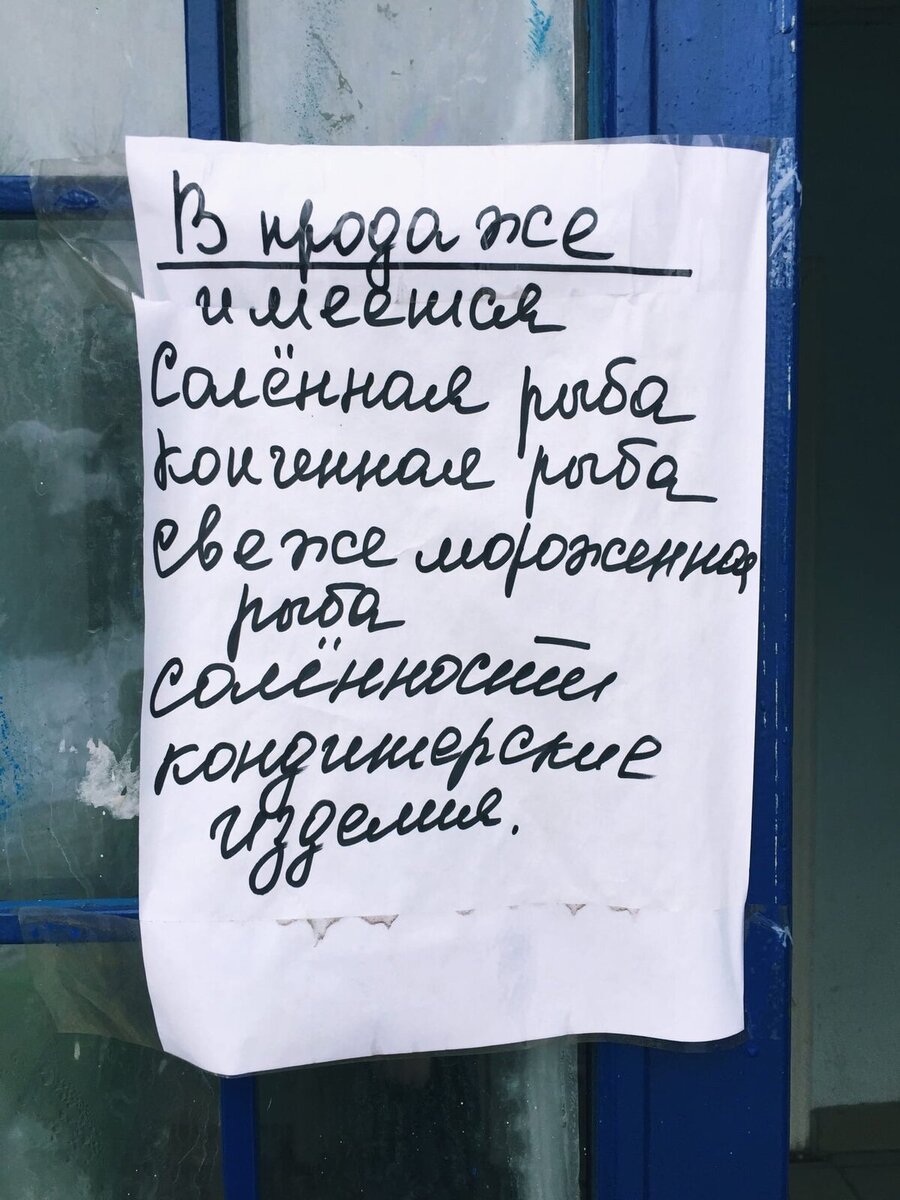 В продаже
имеется
Солённая рыба
Копченная рыба
свеже мороженная
рыба
солённости
кондитерские
изделия.